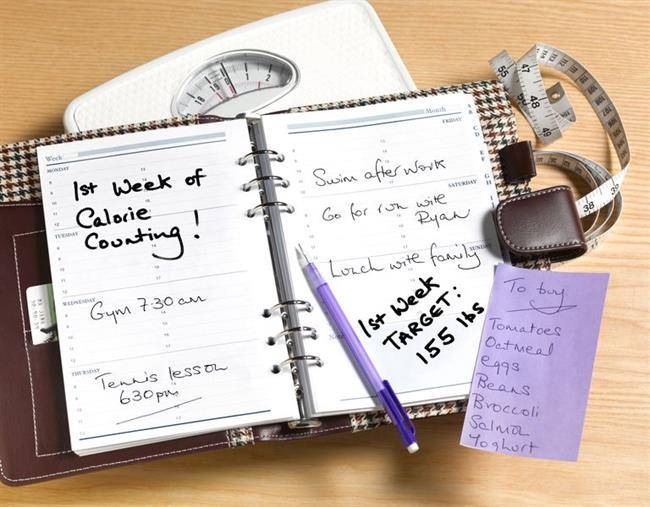 Week
MONDAY
1st Week of
Calorie
Counting!
TUESDAY
WEDNESDAY
Gym 7:30 am
THURSDAY
Tennis lesson
630pm
Month
FRIDAY
Swim after work
SATURDAY
Go for run with
Ryan
SUNDAY
Lunch with family
1st Week
TARGET:
155 lbs
To buy
Tomatoes
Oatmeal
eggs
Beans
Broccoli
Salmon
Yoghurt
47
48
49
38
39